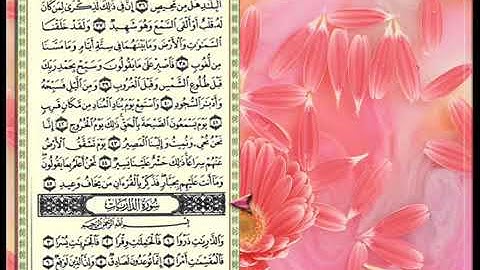 ٱلْبِلَٰدِ هَلْ مِن مَّحِيصٍ ٣٦ إِنَّ فِى ذَٰلِكَ لَذِكْرَىٰ لِمَن كَانَ
لَهُۥ قَلْبٌ أَوْ أَلْقَى ٱلسَّمْعَ وَهُوَ شَهِيدٌ ٣٧ وَلَقَدْ خَلَقْنَا
ٱلسَّمَٰوَٰتِ وَٱلْأَرْضَ وَمَا بَيْنَهُمَا فِى سِتَّةِ أَيَّامٍ وَمَا مَسَّنَا
مِن لُّغُوبٍ ٣٨ فَٱصْبِرْ عَلَىٰ مَا يَقُولُونَ وَسَبِّحْ بِحَمْدِ رَبِّكَ
قَبْلَ طُلُوعِ ٱلشَّمْسِ وَقَبْلَ ٱلْغُرُوبِ ٣٩ وَمِنَ ٱلَّيْلِ فَسَبِّحْهُ
وَأَدْبَٰرَ ٱلسُّجُودِ ٤٠ وَٱسْتَمِعْ يَوْمَ يُنَادِ ٱلْمُنَادِ مِن مَّكَانٍ قَرِيبٍ
٤١ يَوْمَ يَسْمَعُونَ ٱلصَّيْحَةَ بِٱلْحَقِّ ذَٰلِكَ يَوْمُ ٱلْخُرُوجِ ٤٢
إِنَّا نَحْنُ نُحْىِۦ وَنُمِيتُ وَإِلَيْنَا ٱلْمَصِيرُ ٤٣ يَوْمَ تَشَقَّقُ ٱلْأَرْضُ
عَنْهُمْ سِرَاعًا ذَٰلِكَ حَشْرٌ عَلَيْنَا يَسِيرٌ ٤٤ نَّحْنُ أَعْلَمُ بِمَا يَقُولُونَ
وَمَآ أَنتَ عَلَيْهِم بِجَبَّارٍ فَذَكِّرْ بِٱلْقُرْءَانِ مَن يَخَافُ وَعِيدِ ٤٥
سُورَةُ الذَّارِيَاتِ
بِسْمِ ٱللَّهِ ٱلرَّحْمَٰنِ ٱلرَّحِيمِ
وَٱلذَّٰرِيَٰتِ ذَرْوًا ١ فَٱلْحَٰمِلَٰتِ وِقْرًا ٢ فَٱلْجَٰرِيَٰتِ يُسْرًا ٣
فَٱلْمُقَسِّمَٰتِ أَمْرًا ٤ إِنَّمَا تُوعَدُونَ لَصَادِقٌ ٥ وَإِنَّ ٱلدِّينَ لَوَٰقِعٌ ٦